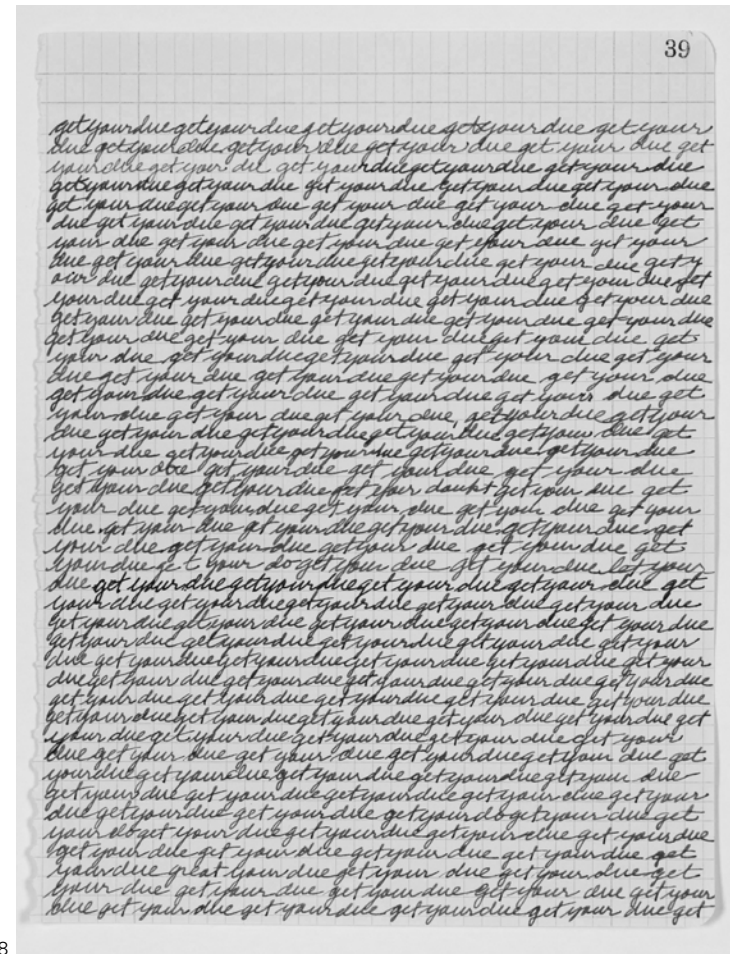 39
getyourduegetyourduegetyourdue getyourdue get your
due getyourdue getyourdue getyour due get your due get
yourdue getyour due get yourduegetyourdue getyour due
getyourduegetyourdue get yourdue getyourduegetyour due
get yourduegetyour due get your due get your due get your
due get yourdue getyourdue getyour duegetyour due get
your due get your due get your due get your due get your
due get your due getyourduegetyourdue get your due get y
our due getyourdue getyourduegetyourduegetyour due get
yourdue get yourduegetyourdue getyour due get your due
getyourdue get yourdue getyourdue getyourdue getyourdue
getyour duegetyour due get your dueget your due get
your due getyourduegetyourdue get your due get your
due get your due get your duegetyourdue get your due
get your due get your due get yourduegetyour due get
your due get your dueget your due, getyourdue getyour
due getyour due getyourduegetyourdue getyour due get
your due getyourdue getyourdue getyourdue getyourdue
get your due get yourdue get yourdue get your due
get your due getyourdue get your doubt getyour due get
your due getyourdue get your due get your due get your
due get your due get yourduegetyourdue getyourdue get
your due get your due getyour due get your due get
your due get your do getyour due get your due let your
due get your due getyourdue get your due getyour due get
yourdue getyourduegetyourdue getyour due getyour due
getyourdue getyour due getyourdue getyourdue get your due
getyour due getyourdue getyourdue getyourdue getyour
due getyourduegetyourduegetyourdue getyourdue getyour
due get your due getyourdue getyourdue getyour due get your due
getyourdue get your due getyourdue getyour due getyour due
getyour due get your due getyourdue getyour due get yourdue get
your due get your due getyourdue getyour due get your
due getyour due get your due get yourdue get your due get
yourdue get yourdue get your due getyourdue getyour due
getyour due get yourdue getyourdue getyour due getyour
due getyourdue get your due getyour do getyour due get
your do get your due get your due getyour due get yourdue
getyour due get your due getyour due get yourdue get
your due great your due get your due get your due get
your due get your due get your due get your due get your
due get your due get your due getyourdue get your due get